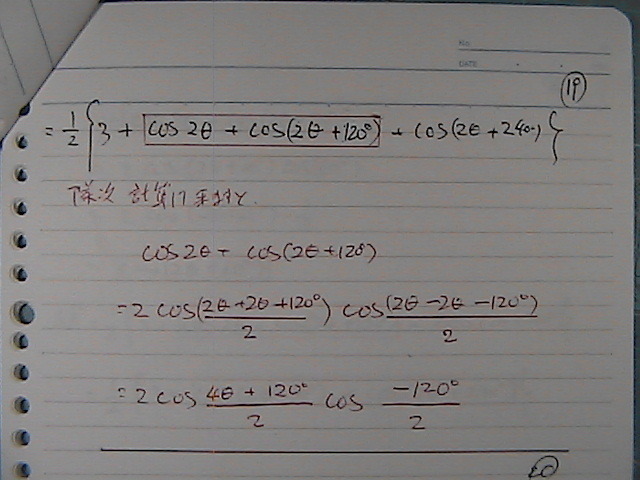 No.
DATE
19
= 1/2 { 3 + cos 2θ + cos(2θ + 120°) + cos(2θ + 240°) }
計算
cos 2θ + cos(2θ + 120°)
= 2 cos (2θ + 2θ + 120°)/2 cos (2θ - 2θ - 120°)/2
= 2 cos (4θ + 120°)/2 cos (-120°)/2
20